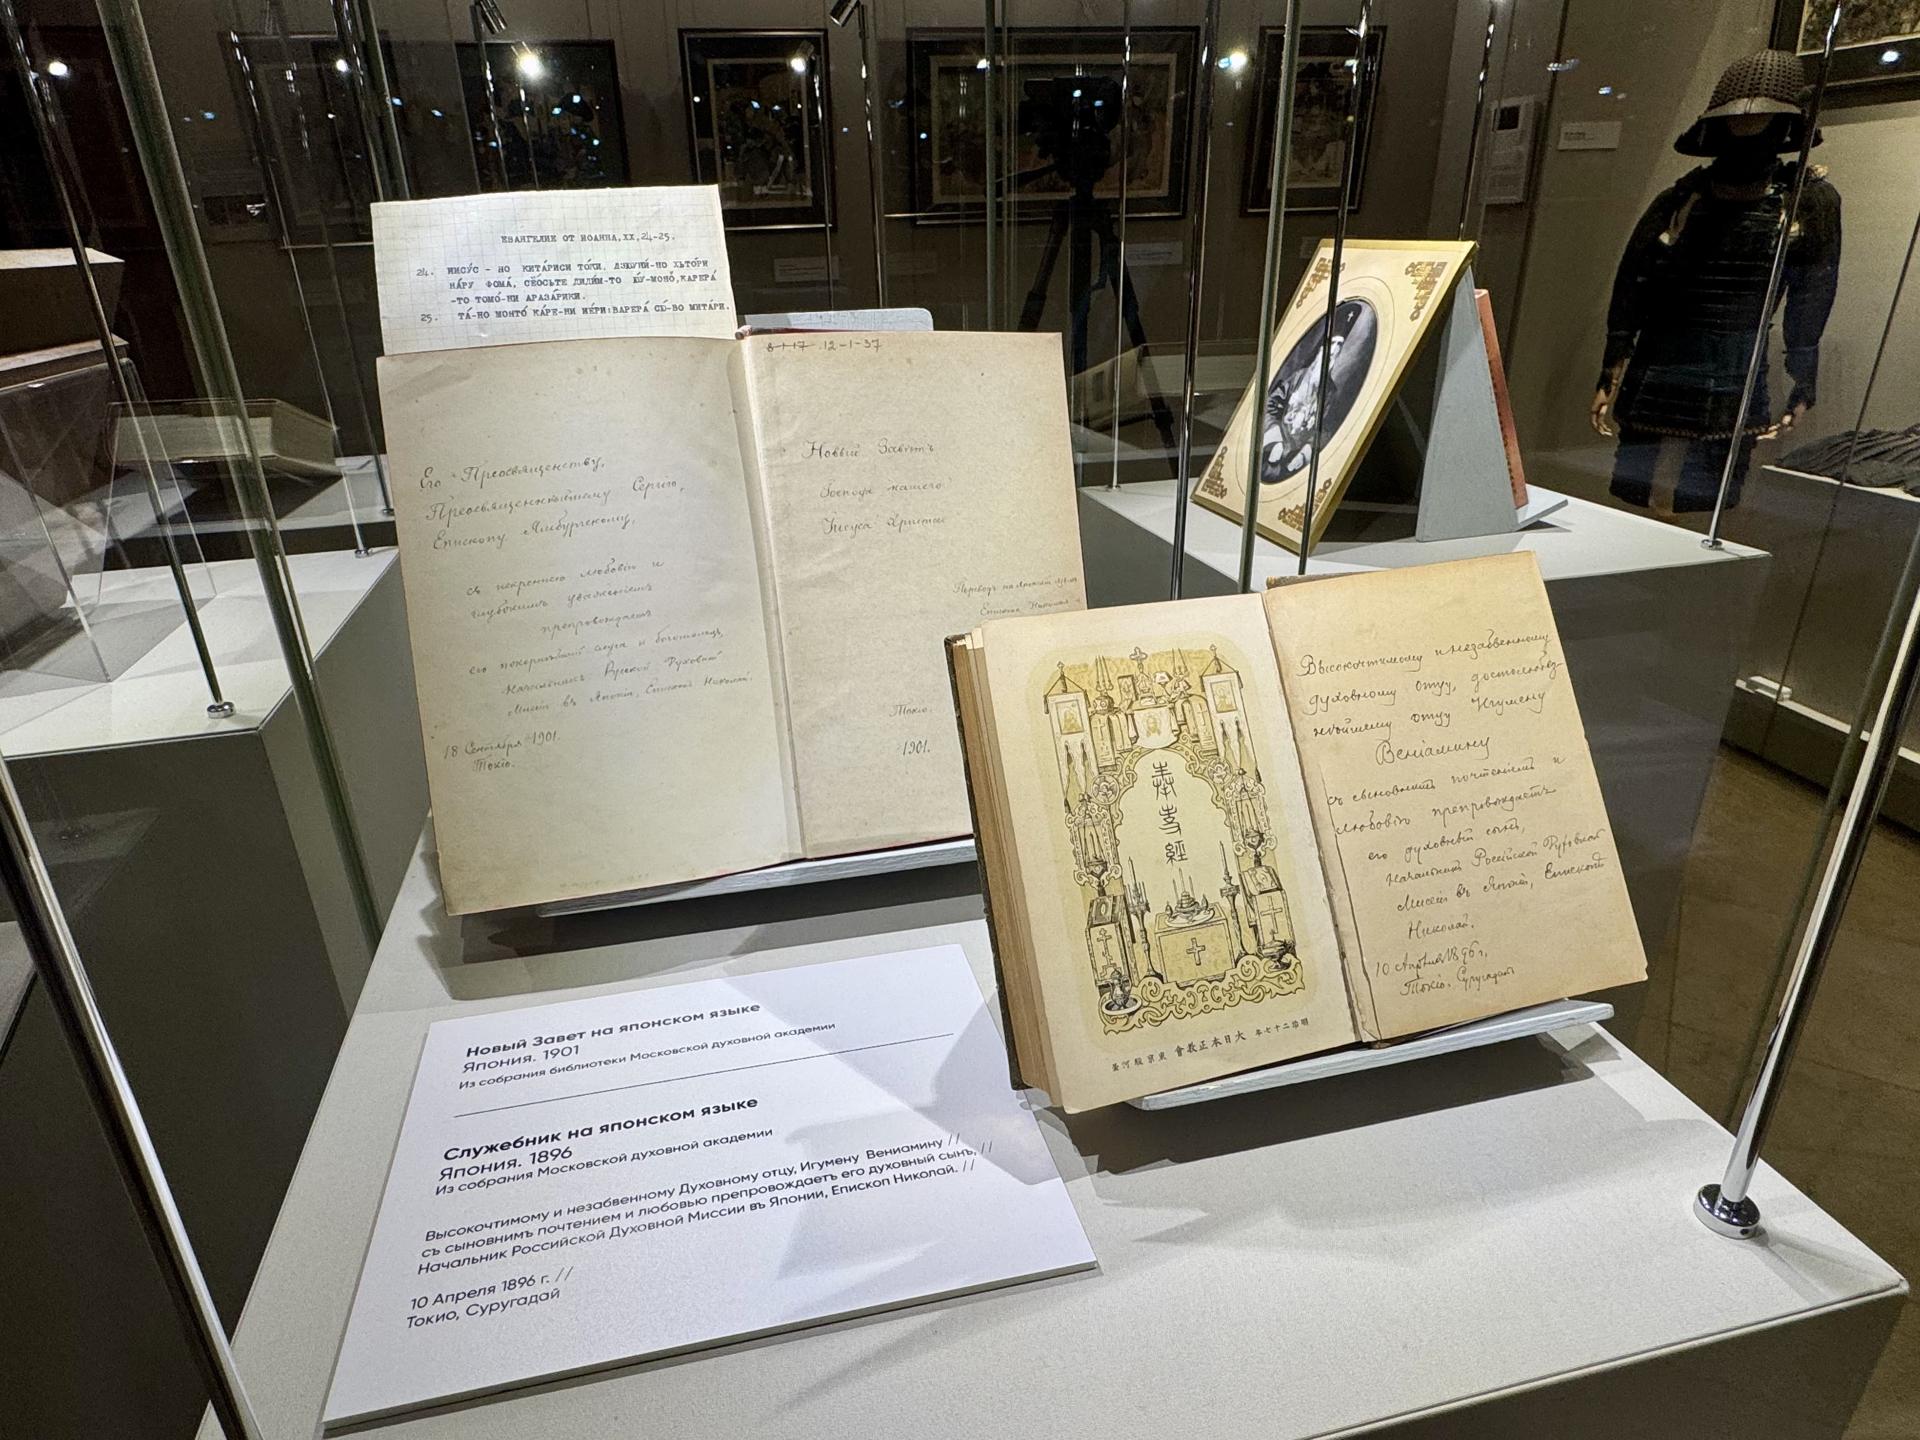 ЕВАНГЕЛИЕ ОТ ИОАННА, XX, 24-25.
24. ИИСУ́С - НО КИТА́РИСИ ТО́КИ, ДЗЮУНИ́-НО ХЬТО́РИ
НА́РУ ФОМА́, СЁОСЬТЕ ДИДИ́М-ТО Ю́У-МОНО́, КАРЕРА́
-ТО ТОМО́-НИ АРАЗА́РИКИ.
25. ТА́-НО МОНТО́ КА́РЕ-НИ ИЕ́РИ: ВАРЕРА́ СЮ́-ВО МИТА́РИ.
8-1-17 12-1-37
Его Преосвященству,
Преосвященнѣйшему Сергію,
Епископу Ямбургскому,
съ искреннею любовію и
глубокимъ уваженіемъ
препровождаетъ
его покорнѣйшій слуга и богомолецъ,
Начальникъ Русской Духовной
Миссіи въ Японіи, Епископъ Николай.
18 Сентября 1901.
Токіо.
Новый Завѣтъ
Господа нашего
Іисуса Христа
Переводъ на Японскій
Епископа Николая
Токіо.
1901.
奉事經
明治二十七年 大日本正教會 東京駿河臺
Высокочтимому и незабвенному
духовному отцу, достолюбез-
нѣйшему отцу Игумену
Веніамину
съ сыновнимъ почтеніемъ и
любовію препровождаетъ
его духовный сынъ,
Начальникъ Россійской Духовной
Миссіи въ Японіи, Епископъ
Николай.
10 Апрѣля 1896 г.
Токіо. Суругадай
Новый Завет на японском языке
Япония. 1901
Из собрания библиотеки Московской духовной академии
Служебник на японском языке
Япония. 1896
Из собрания Московской духовной академии
Высокочтимому и незабвенному Духовному отцу, Игумену Вениамину //
съ сыновнимъ почтением и любовью препровождаетъ его духовный сынъ, //
Начальник Российской Духовной Миссии въ Японии, Епископ Николай. //
10 Апреля 1896 г. //
Токио, Суругадай